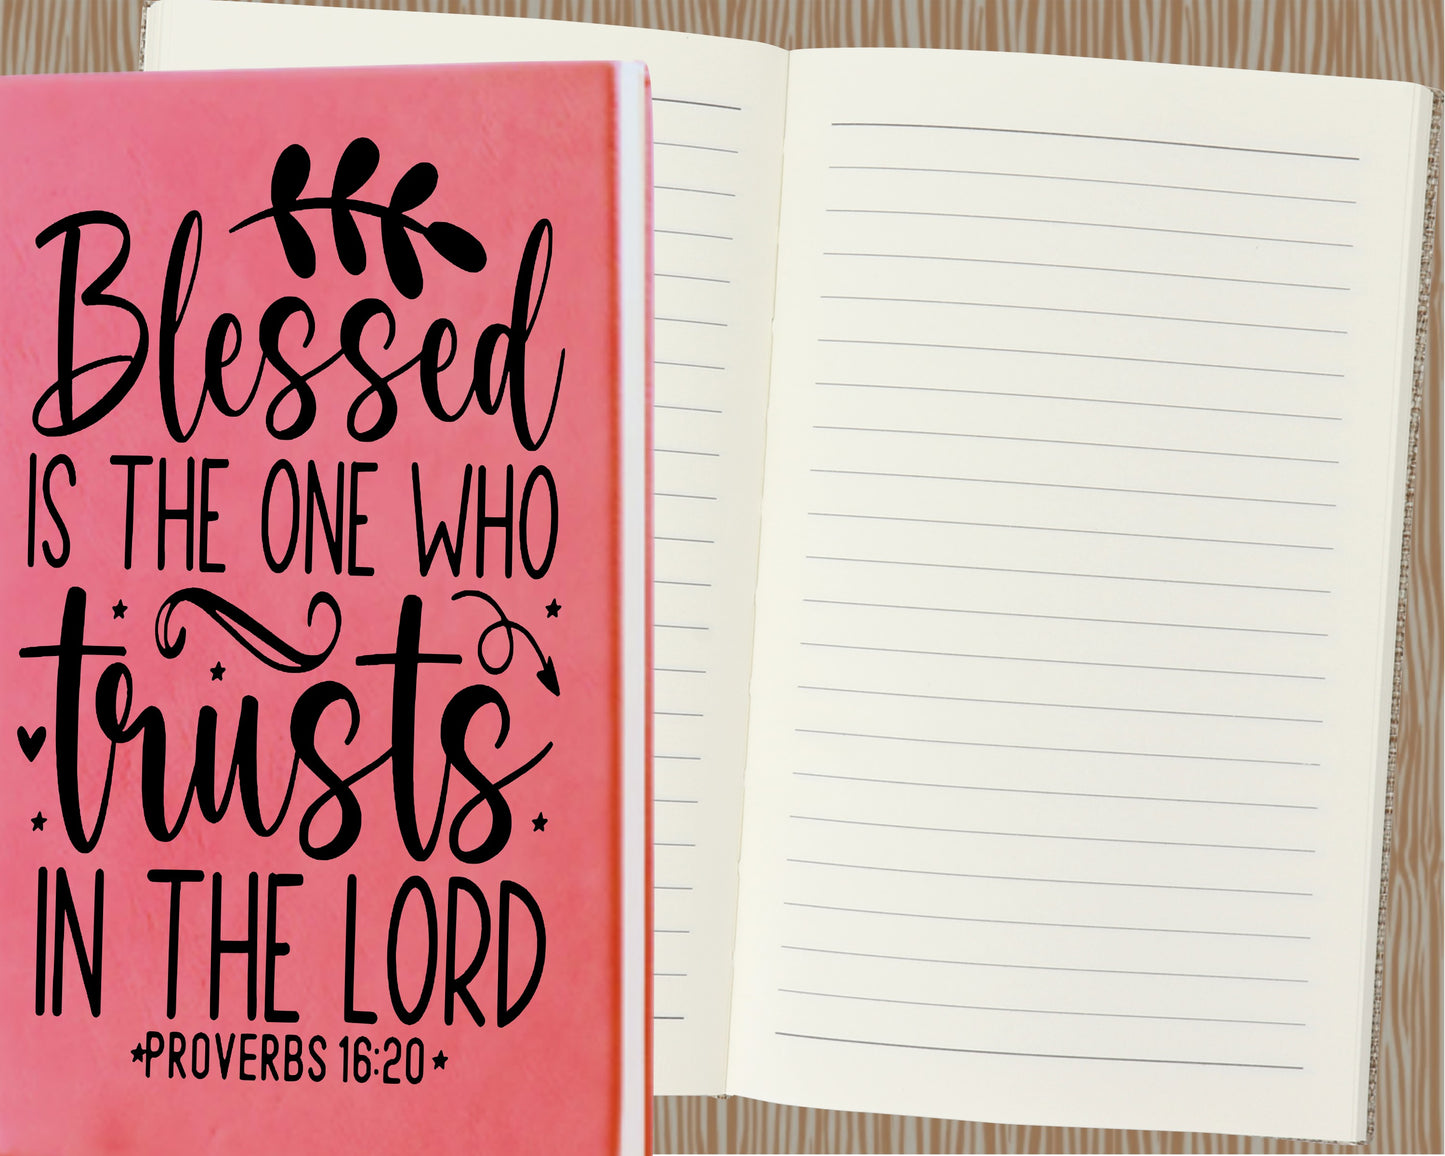 Blessed
IS THE ONE WHO
trusts
IN THE LORD
PROVERBS 16:20